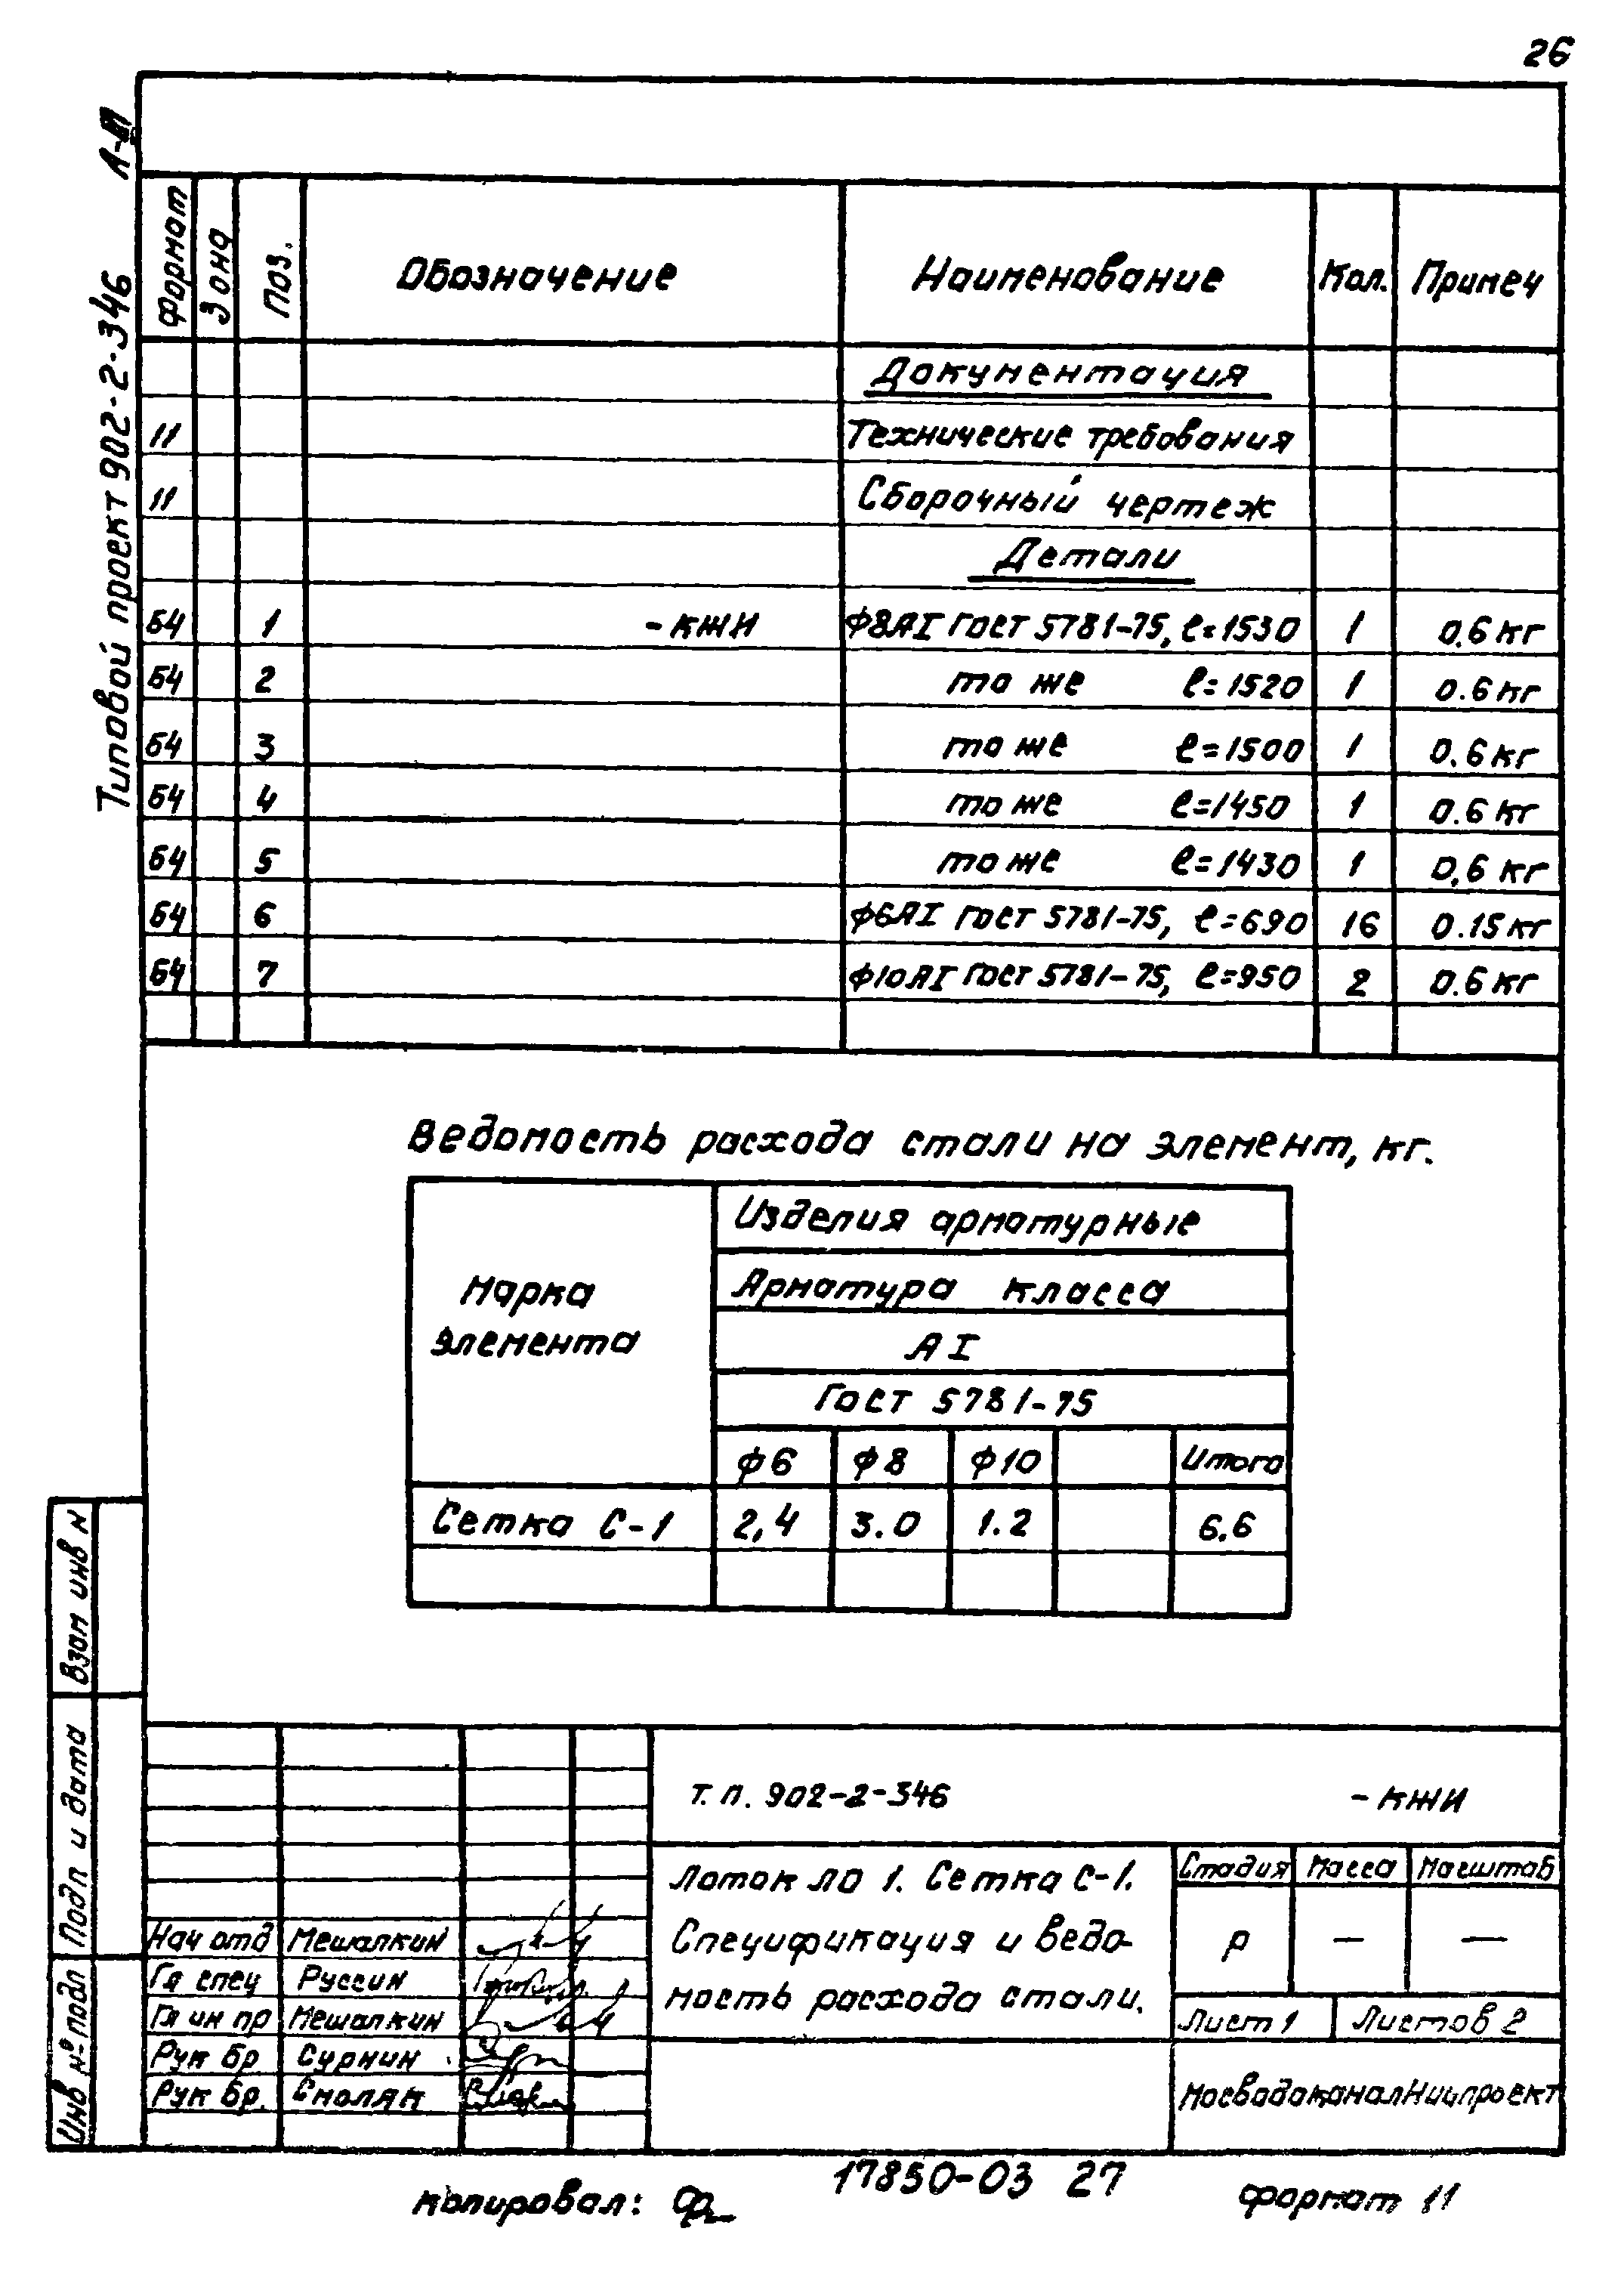 26
Типовой проект 902-2-346
Формат Зона Поз. Обозначение Наименование Кол. Примеч
Документация
11 Технические требования
11 Сборочный чертеж
Детали
Б4 1 -КЖИ ф8АI ГОСТ 5781-75, ℓ=1530 1 0.6 кг
Б4 2 то же ℓ=1520 1 0.6 кг
Б4 3 то же ℓ=1500 1 0.6 кг
Б4 4 то же ℓ=1450 1 0.6 кг
Б4 5 то же ℓ=1430 1 0,6 кг
Б4 6 ф6АI ГОСТ 5781-75, ℓ=690 16 0.15 кг
Б4 7 ф10АI ГОСТ 5781-75, ℓ=950 2 0.6 кг
Ведомость расхода стали на элемент, кг.
Марка элемента
Изделия арматурные
Арматура класса
АI
ГОСТ 5781-75
ф6 ф8 ф10 Итого
Сетка С-1 2,4 3.0 1.2 6.6
Взам инв N
Подп и дата
Инв № подл
т.п. 902-2-346 -КЖИ
Лоток ЛО 1. Сетка С-1.
Спецификация и ведо-
мость расхода стали.
Стадия Масса Масштаб
Р — —
Лист 1 Листов 2
МосводоканалНиипроект
Нач отд Мешалкин
Гл спец Руссин
Гл ин пр Мешалкин
Рук бр Сурнин
Рук бр. Смоляк
копировал:
17850-03 27
формат 11